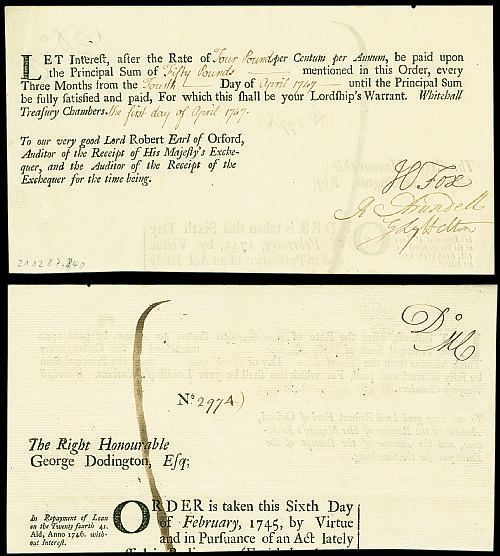 LET Interest, after the Rate of Four Pounds per Centum per Annum, be paid upon
the Principal Sum of Fifty Pounds mentioned in this Order, every
Three Months from the Fourth Day of April 1747 until the Principal Sum
be fully satisfied and paid, For which this shall be your Lordship's Warrant. Whitehall
Treasury Chambers. the first day of April 1747.
To our very good Lord Robert Earl of Orford,
Auditor of the Receipt of His Majesty's Exche-
quer, and the Auditor of the Receipt of the
Exchequer for the time being.
H Fox
R Arundell
211287.240
Do
No. 2974)
The Right Honourable
George Dodington, Esq;
In Repayment of Loan
on the Twenty fourth 4s.
Aid, Anno 1746. with-
out Interest.
ORDER is taken this Sixth Day
of February, 1745, by Virtue
and in Pursuance of an Act lately